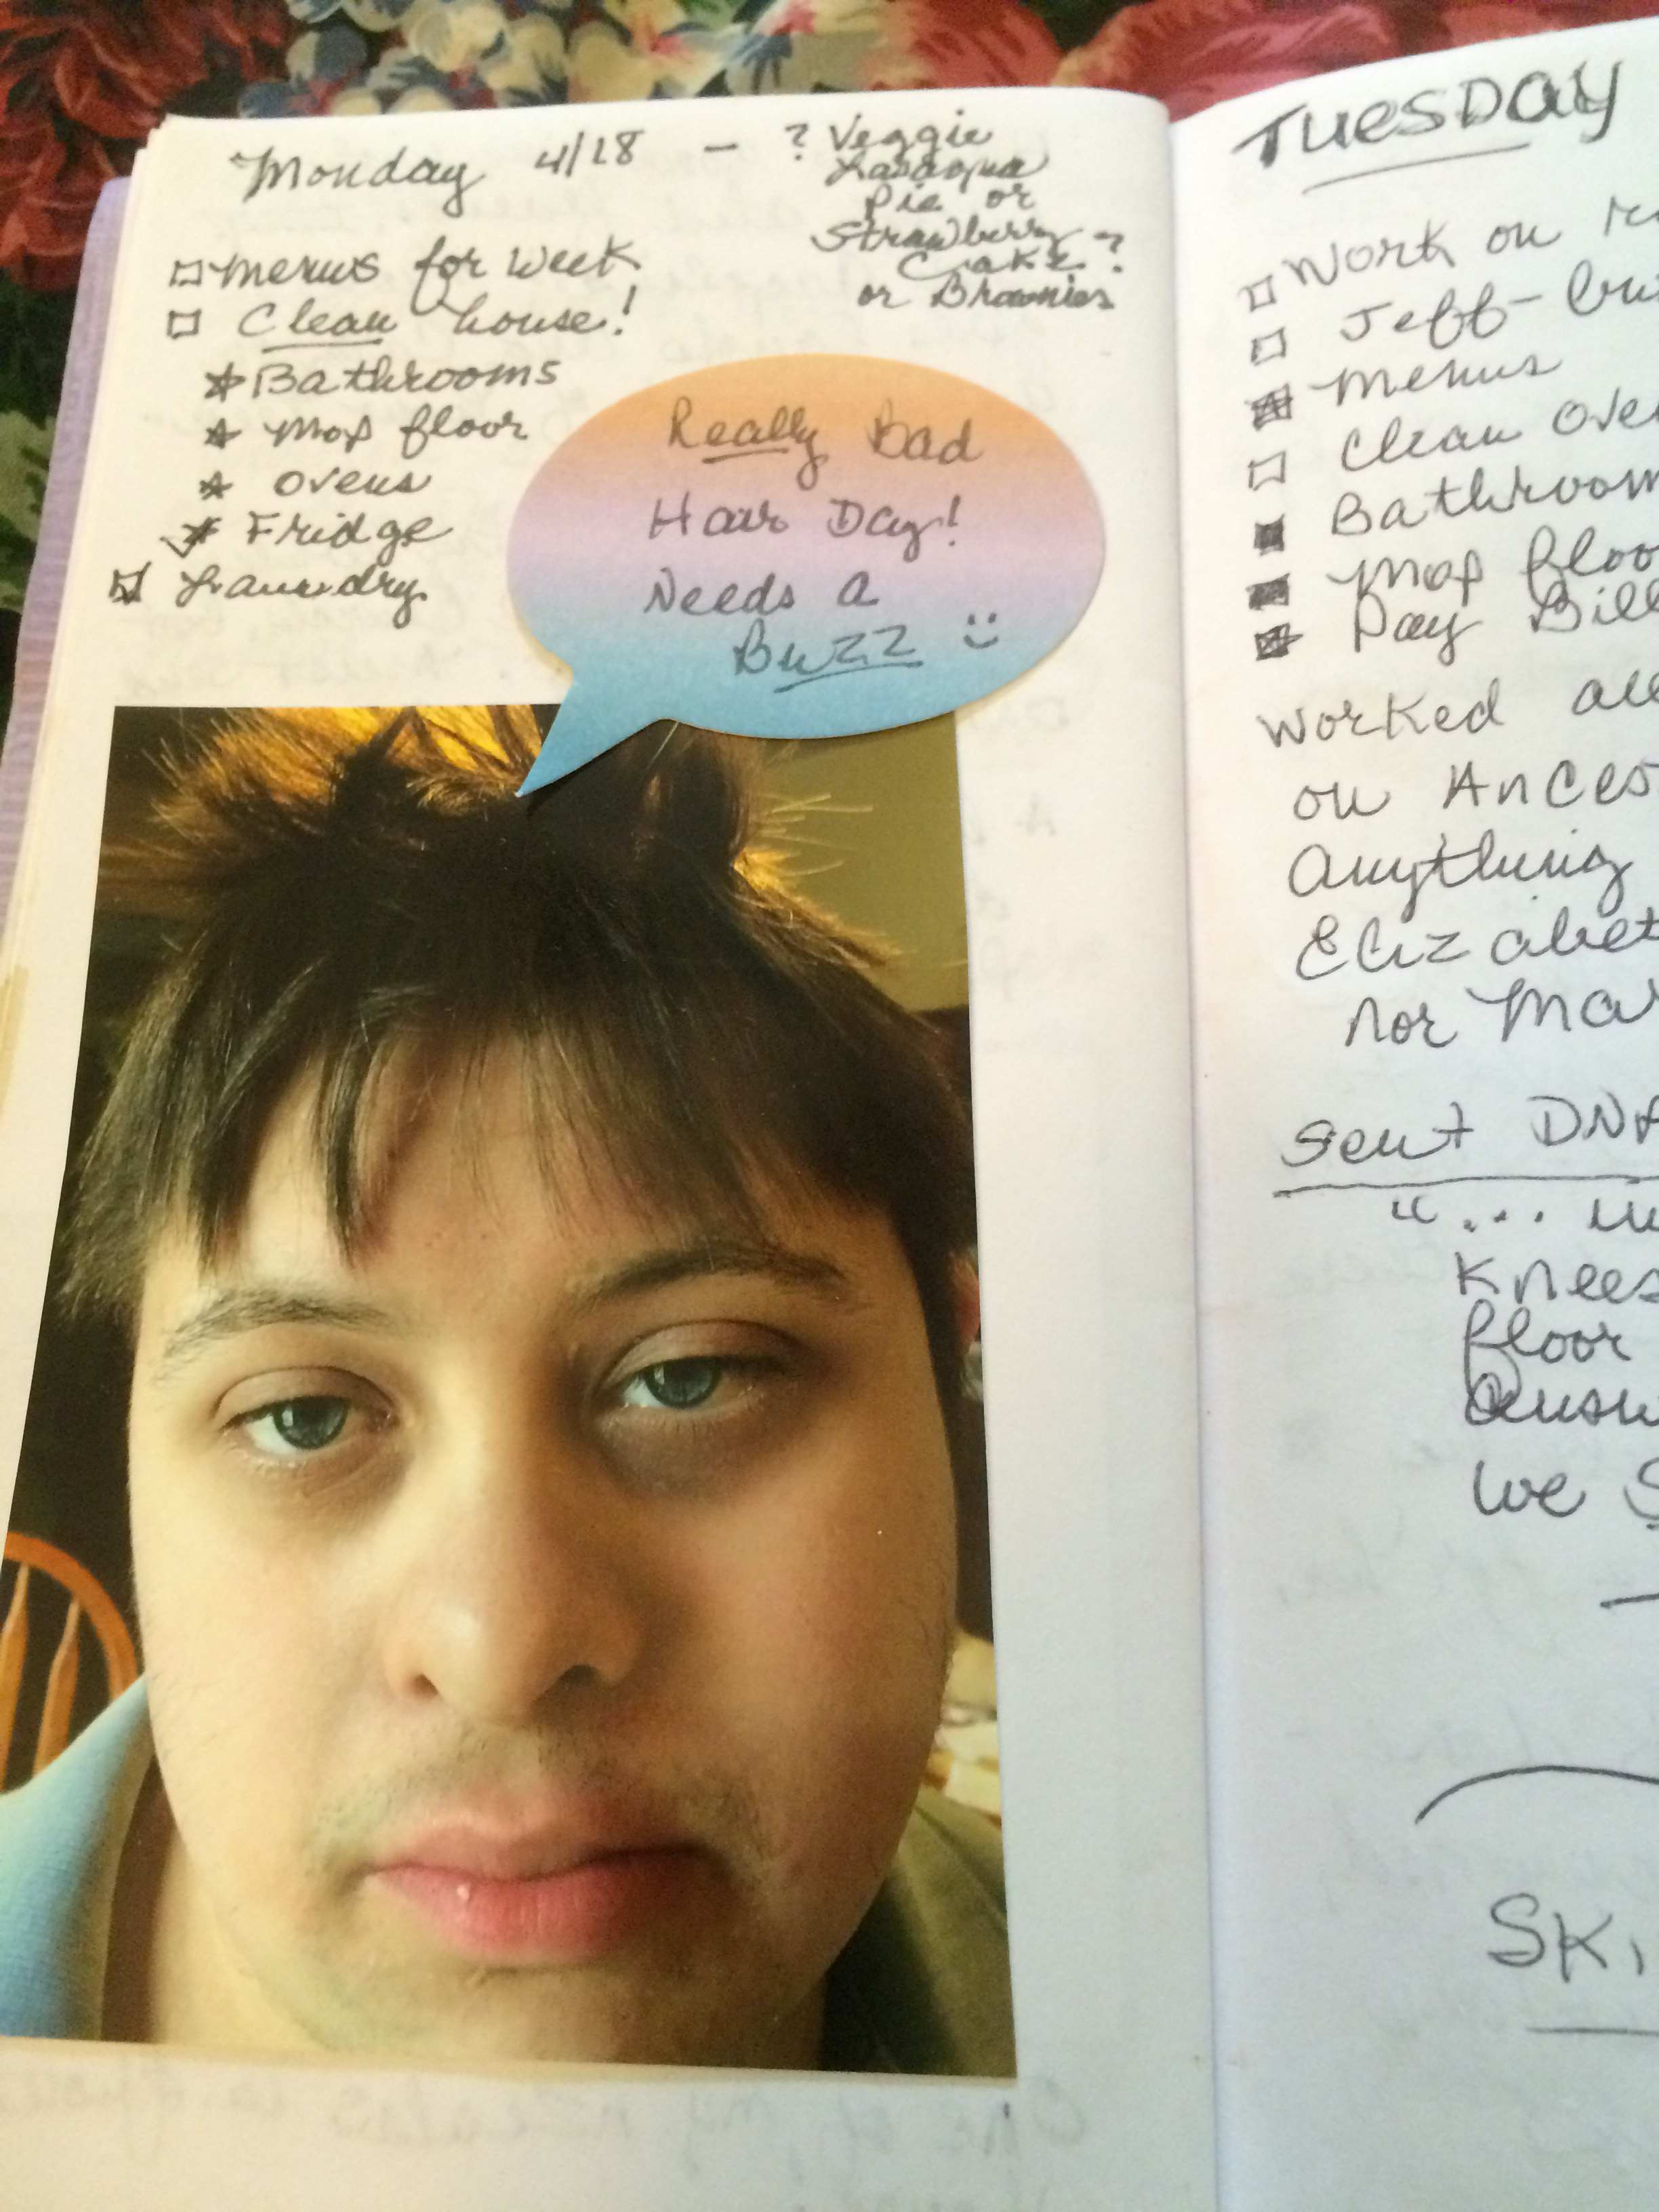 Monday 4/18 - ? Veggie
Lasagna
Pie or
Strawberry
Cake ?
or Brownies
Menus for week
Clean house!
Bathrooms
Mop floor
Ovens
Fridge
Laundry
Really Bad
Hair Day!
Needs a
Buzz
TUESDAY
Work on
Jeff-
Menus
Clean
Bathroom
Mop floo
Pay Bill
Worked
on Ances
Anything
Elizabet
nor Mar
Sent DNA
"...
Knees
floor
we
SKI